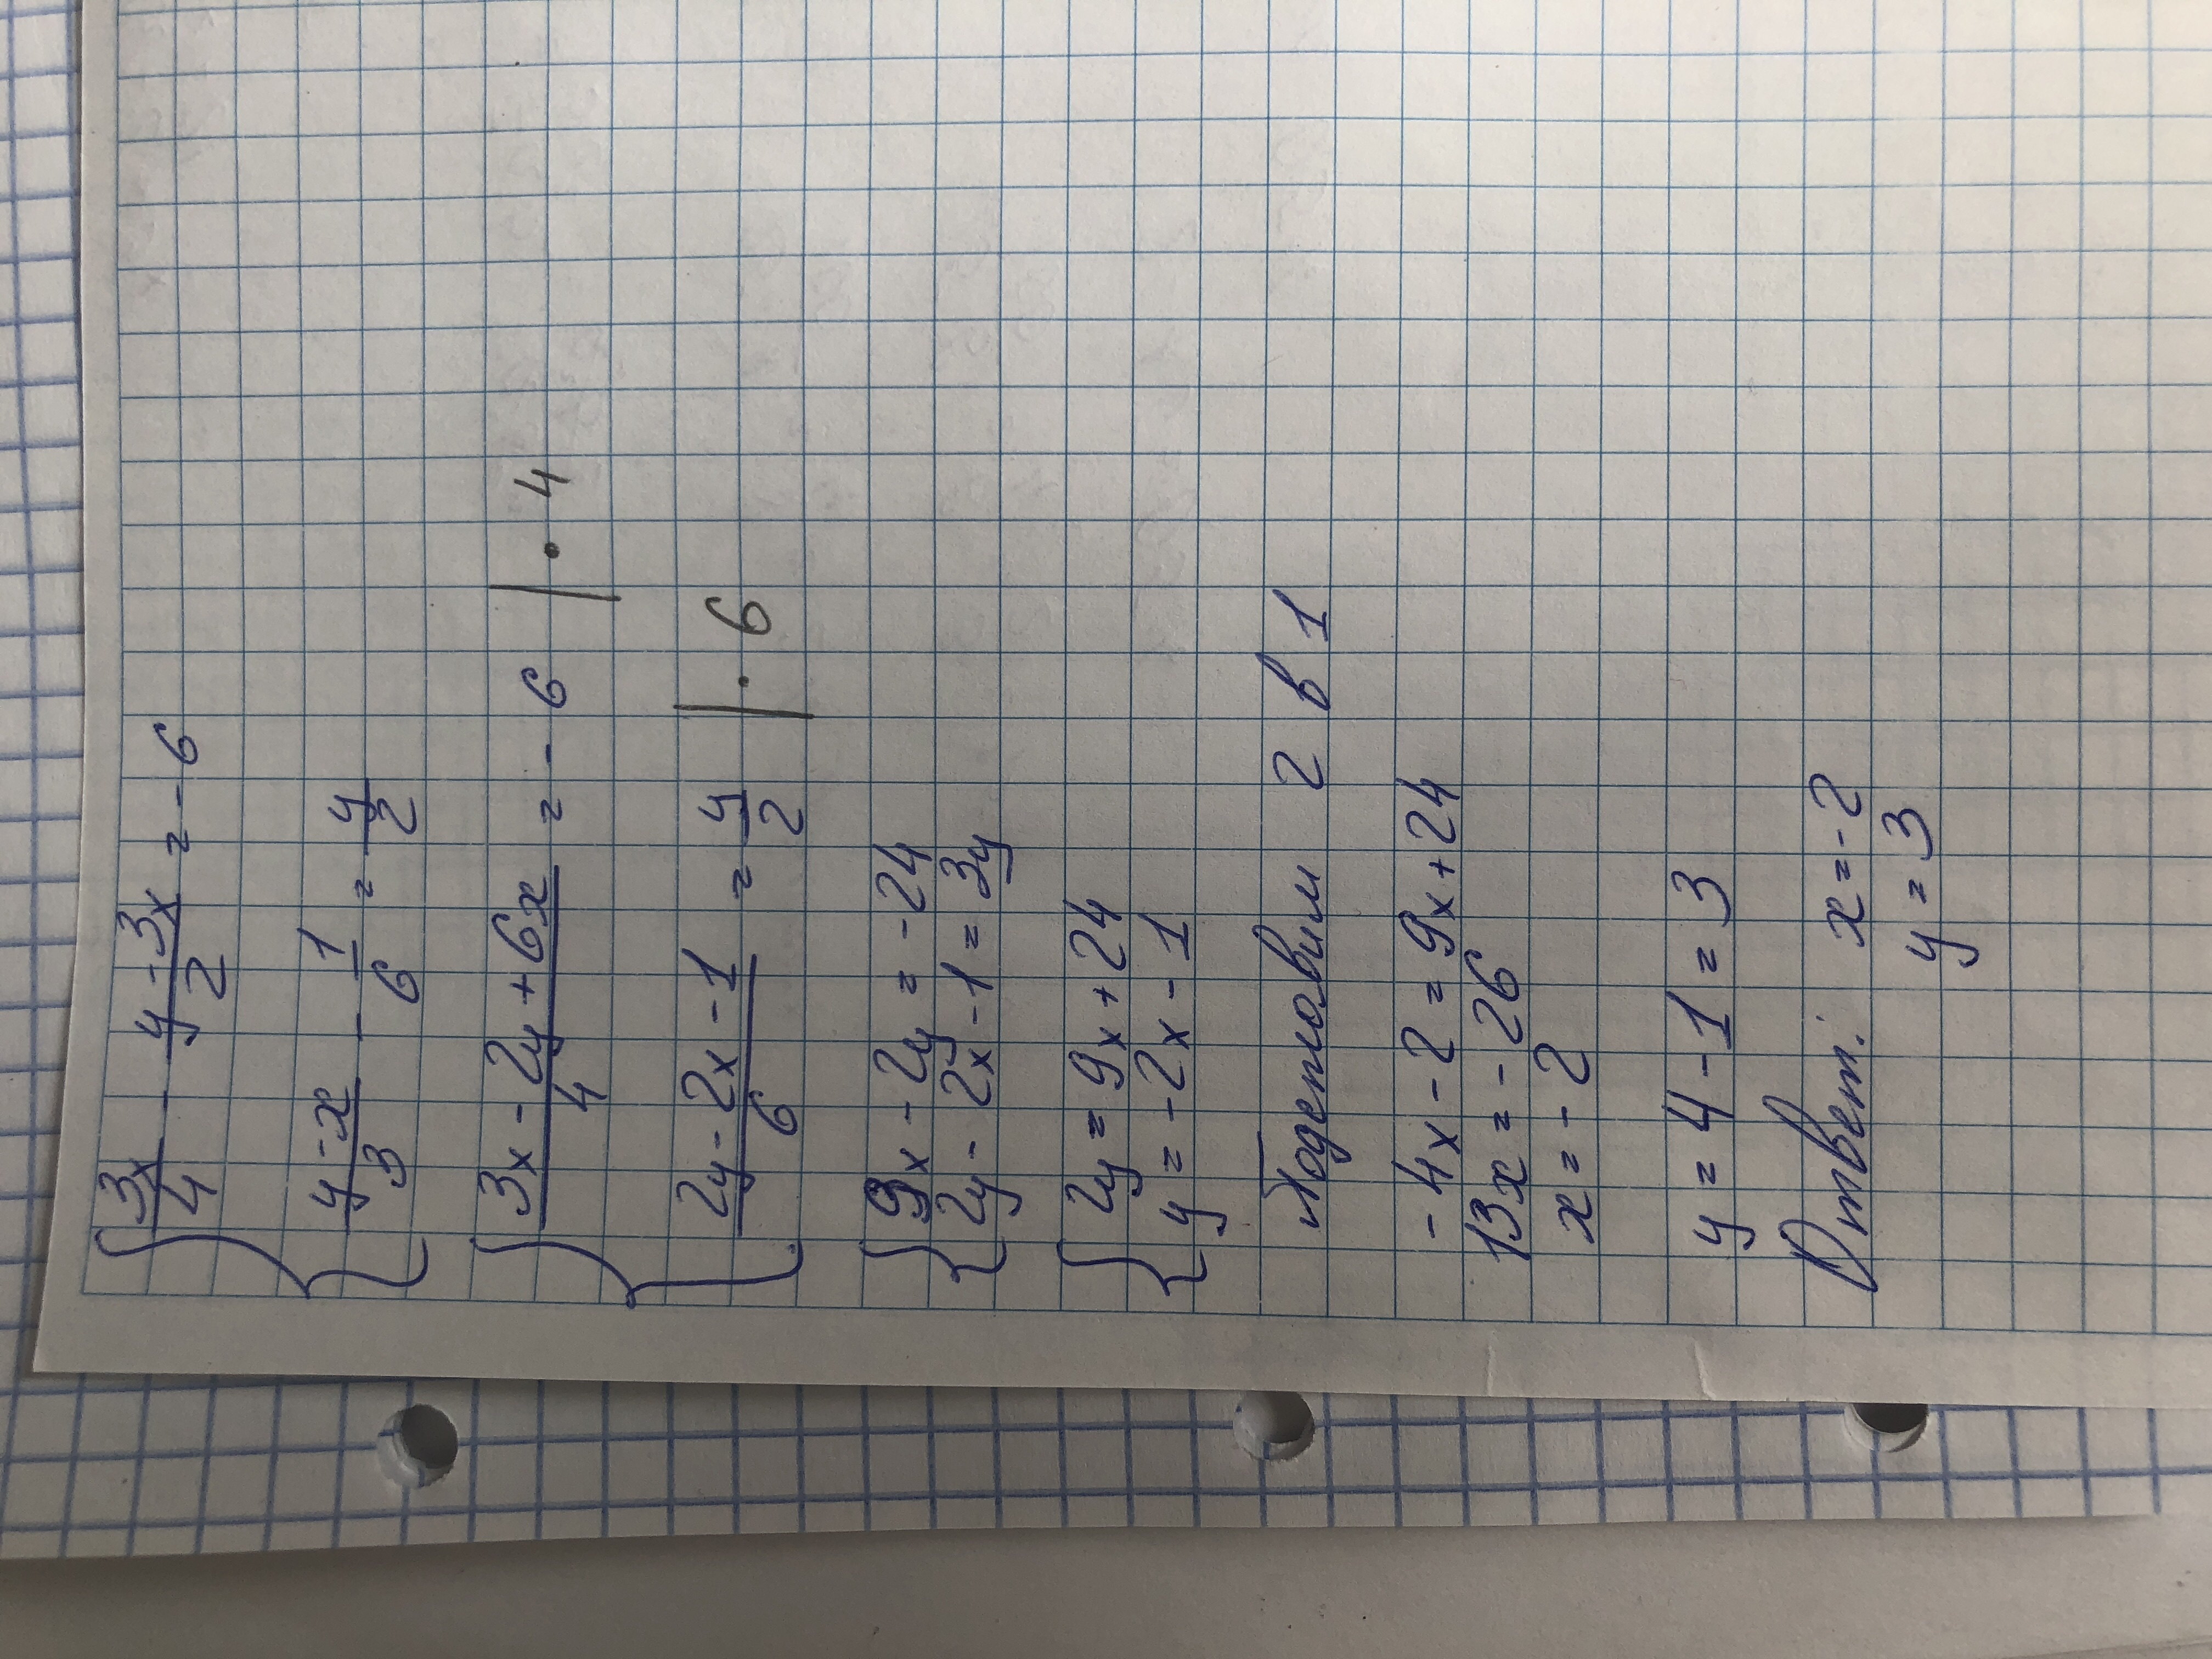 { 3x/4 - (y-3x)/2 = -6
(y-x)/3 - 1/6 = y/2
{ (3x-2y+6x)/4 = -6 | · 4
(2y-2x-1)/6 = y/2 | · 6
{ 9x - 2y = -24
2y - 2x - 1 = 3y
{ 2y = 9x + 24
y = -2x - 1
Подставим 2 в 1
-4x - 2 = 9x + 24
13x = -26
x = -2
y = 4 - 1 = 3
Ответ: x = -2
y = 3